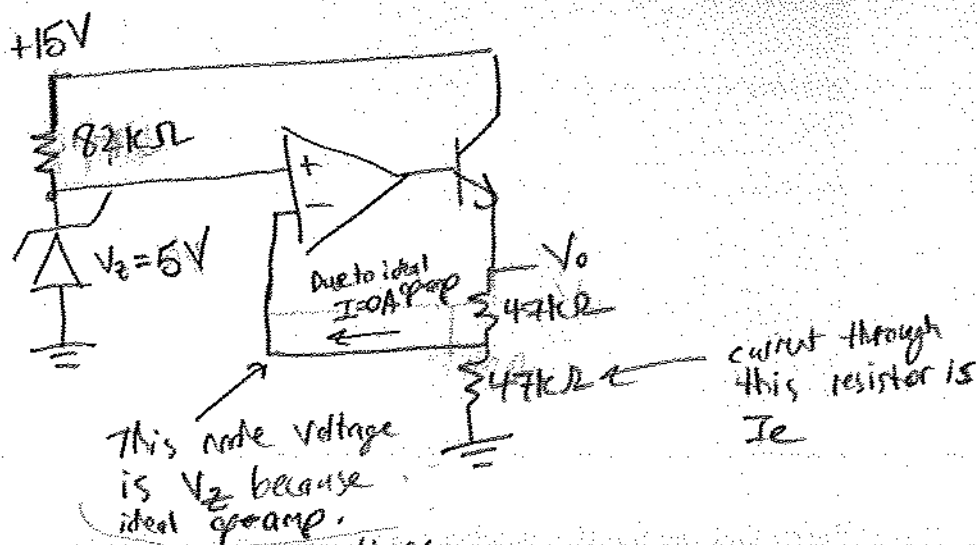 +15V
82kΩ
+
−
Vz = 5V
Due to ideal
I=0A op amp
Vo
47kΩ
47kΩ
current through
this resistor is
Ie
This node voltage
is Vz because
ideal op-amp.